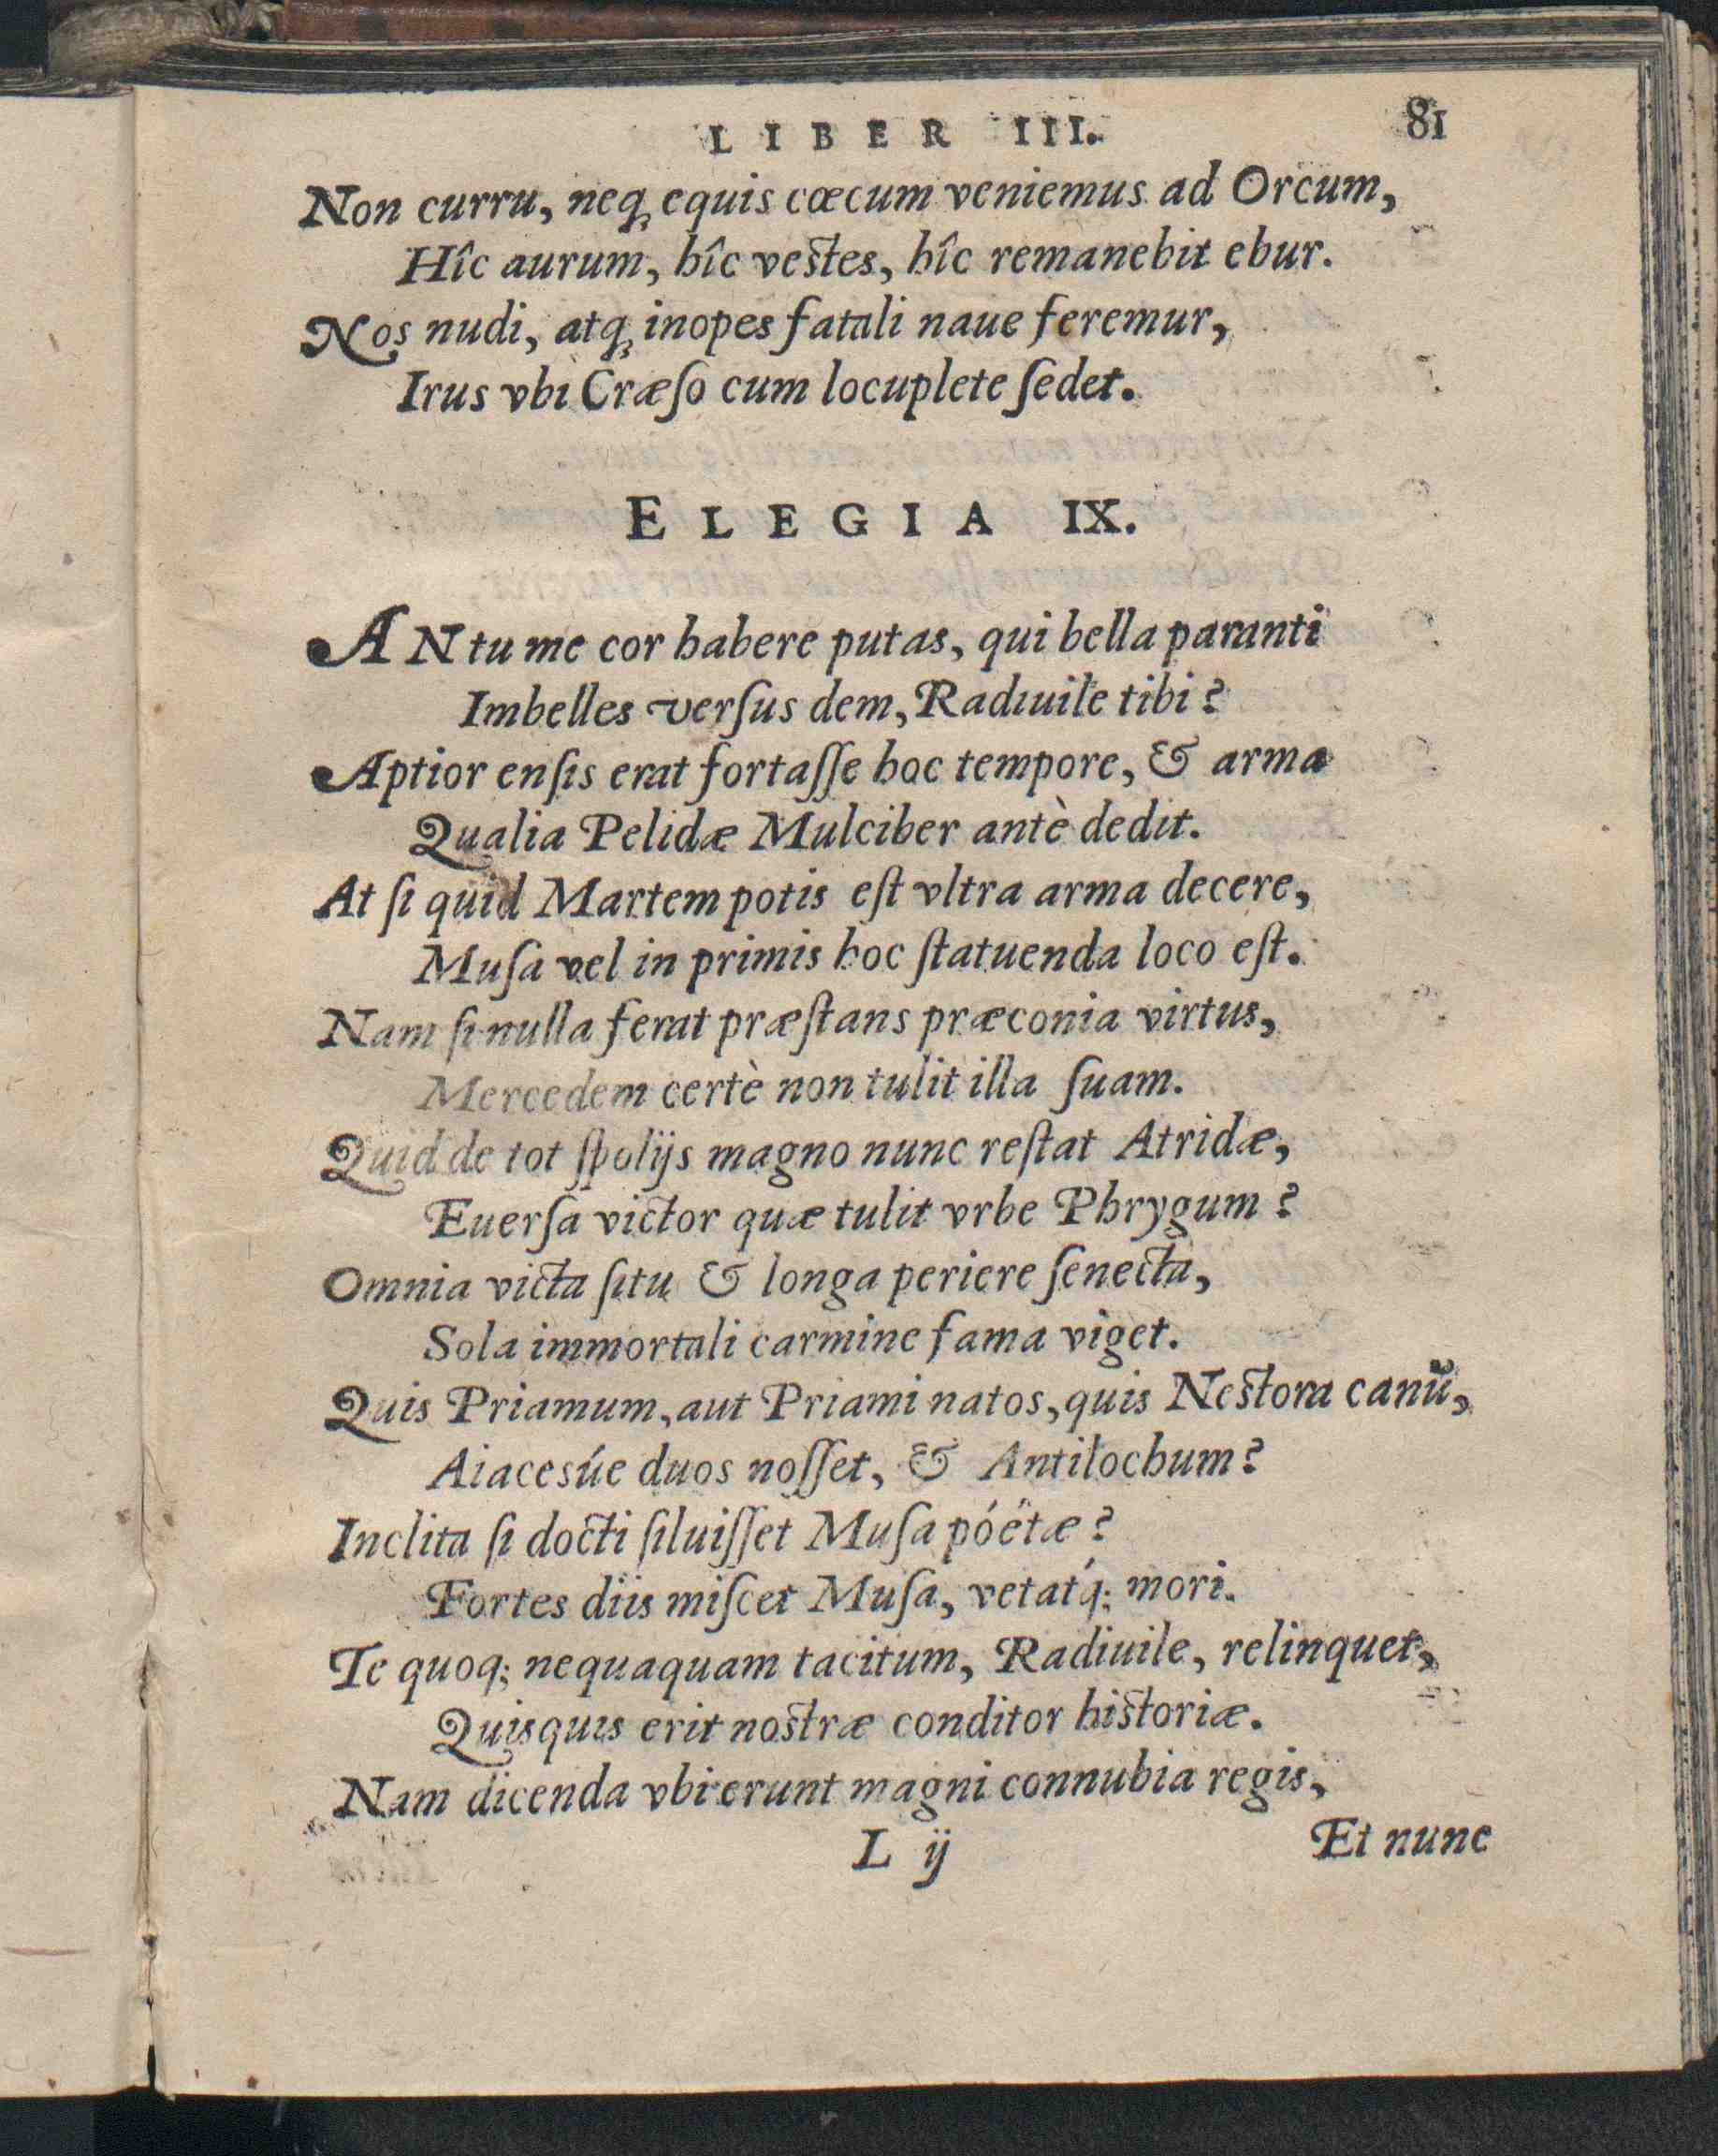 LIBER III. 81
Non curru, neq́ꝫ equis cœcum veniemus ad Orcum,
Hîc aurum, hîc vestes, hîc remanebit ebur.
Nos nudi, atqꝫ inopes fatali naue feremur,
Irus vbi Cræſo cum locuplete ſedet.
ELEGIA IX.
AN tu me cor habere putas, qui bella paranti
Imbelles verſus dem, Radiuile tibi?
Aptior enſis erat fortaſſe hoc tempore, & arma
Qualia Pelidæ Mulciber antè dedit.
At ſi quid Martem potis eſt vltra arma decere,
Muſa vel in primis hoc ſtatuenda loco eſt.
Nam ſi nulla ferat præſtans præconia virtus,
Mercedem certè non tulit illa ſuam.
Quid de tot ſpolijs magno nunc reſtat Atridæ,
Euerſa victor quæ tulit vrbe Phrygum?
Omnia victa ſitu & longa periere ſenecta,
Sola immortali carmine fama viget.
Quis Priamum, aut Priami natos, quis Nestora canũ,
Aiacesúe duos noſſet, & Antilochum?
Inclita ſi docti ſiluiſſet Muſa póëtæ?
Fortes diis miſcet Muſa, vetatq́; mori.
Te quoq; nequaquam tacitum, Radiuile, relinquet,
Quisquis erit nostræ conditor historiæ.
Nam dicenda vbi erunt magni connubia regis,
L ij Et nunc